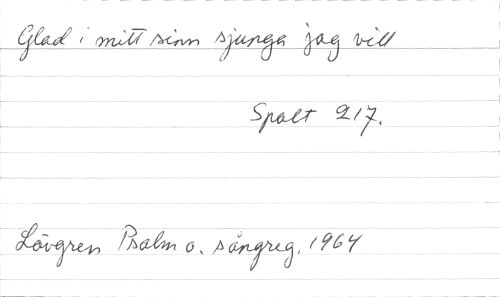 Glad i mitt sinn sjunga jag vill
Spalt 217.
Lövgren Psalm o. sångreg. 1964